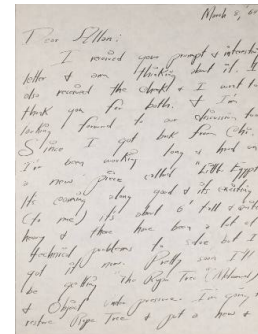 March 8, 60
Dear Ellen:
I received your prompt & interesting
letter & am thinking about it. I
also received the check & I want to
thank you for both. & I'm
looking forward to our discussion too
Since I got back from Chi.
I've been working long & hard on
a new piece called "Little Egypt
its coming along good & its exciting
(to me) its about 6' tall & quite
heavy & there have been a lot of
technical problems to solve but I
got it now. Pretty soon I'll
be getting "The Rose Tree
& Object under pressure. I'm going to
restore Rose Tree & put a new